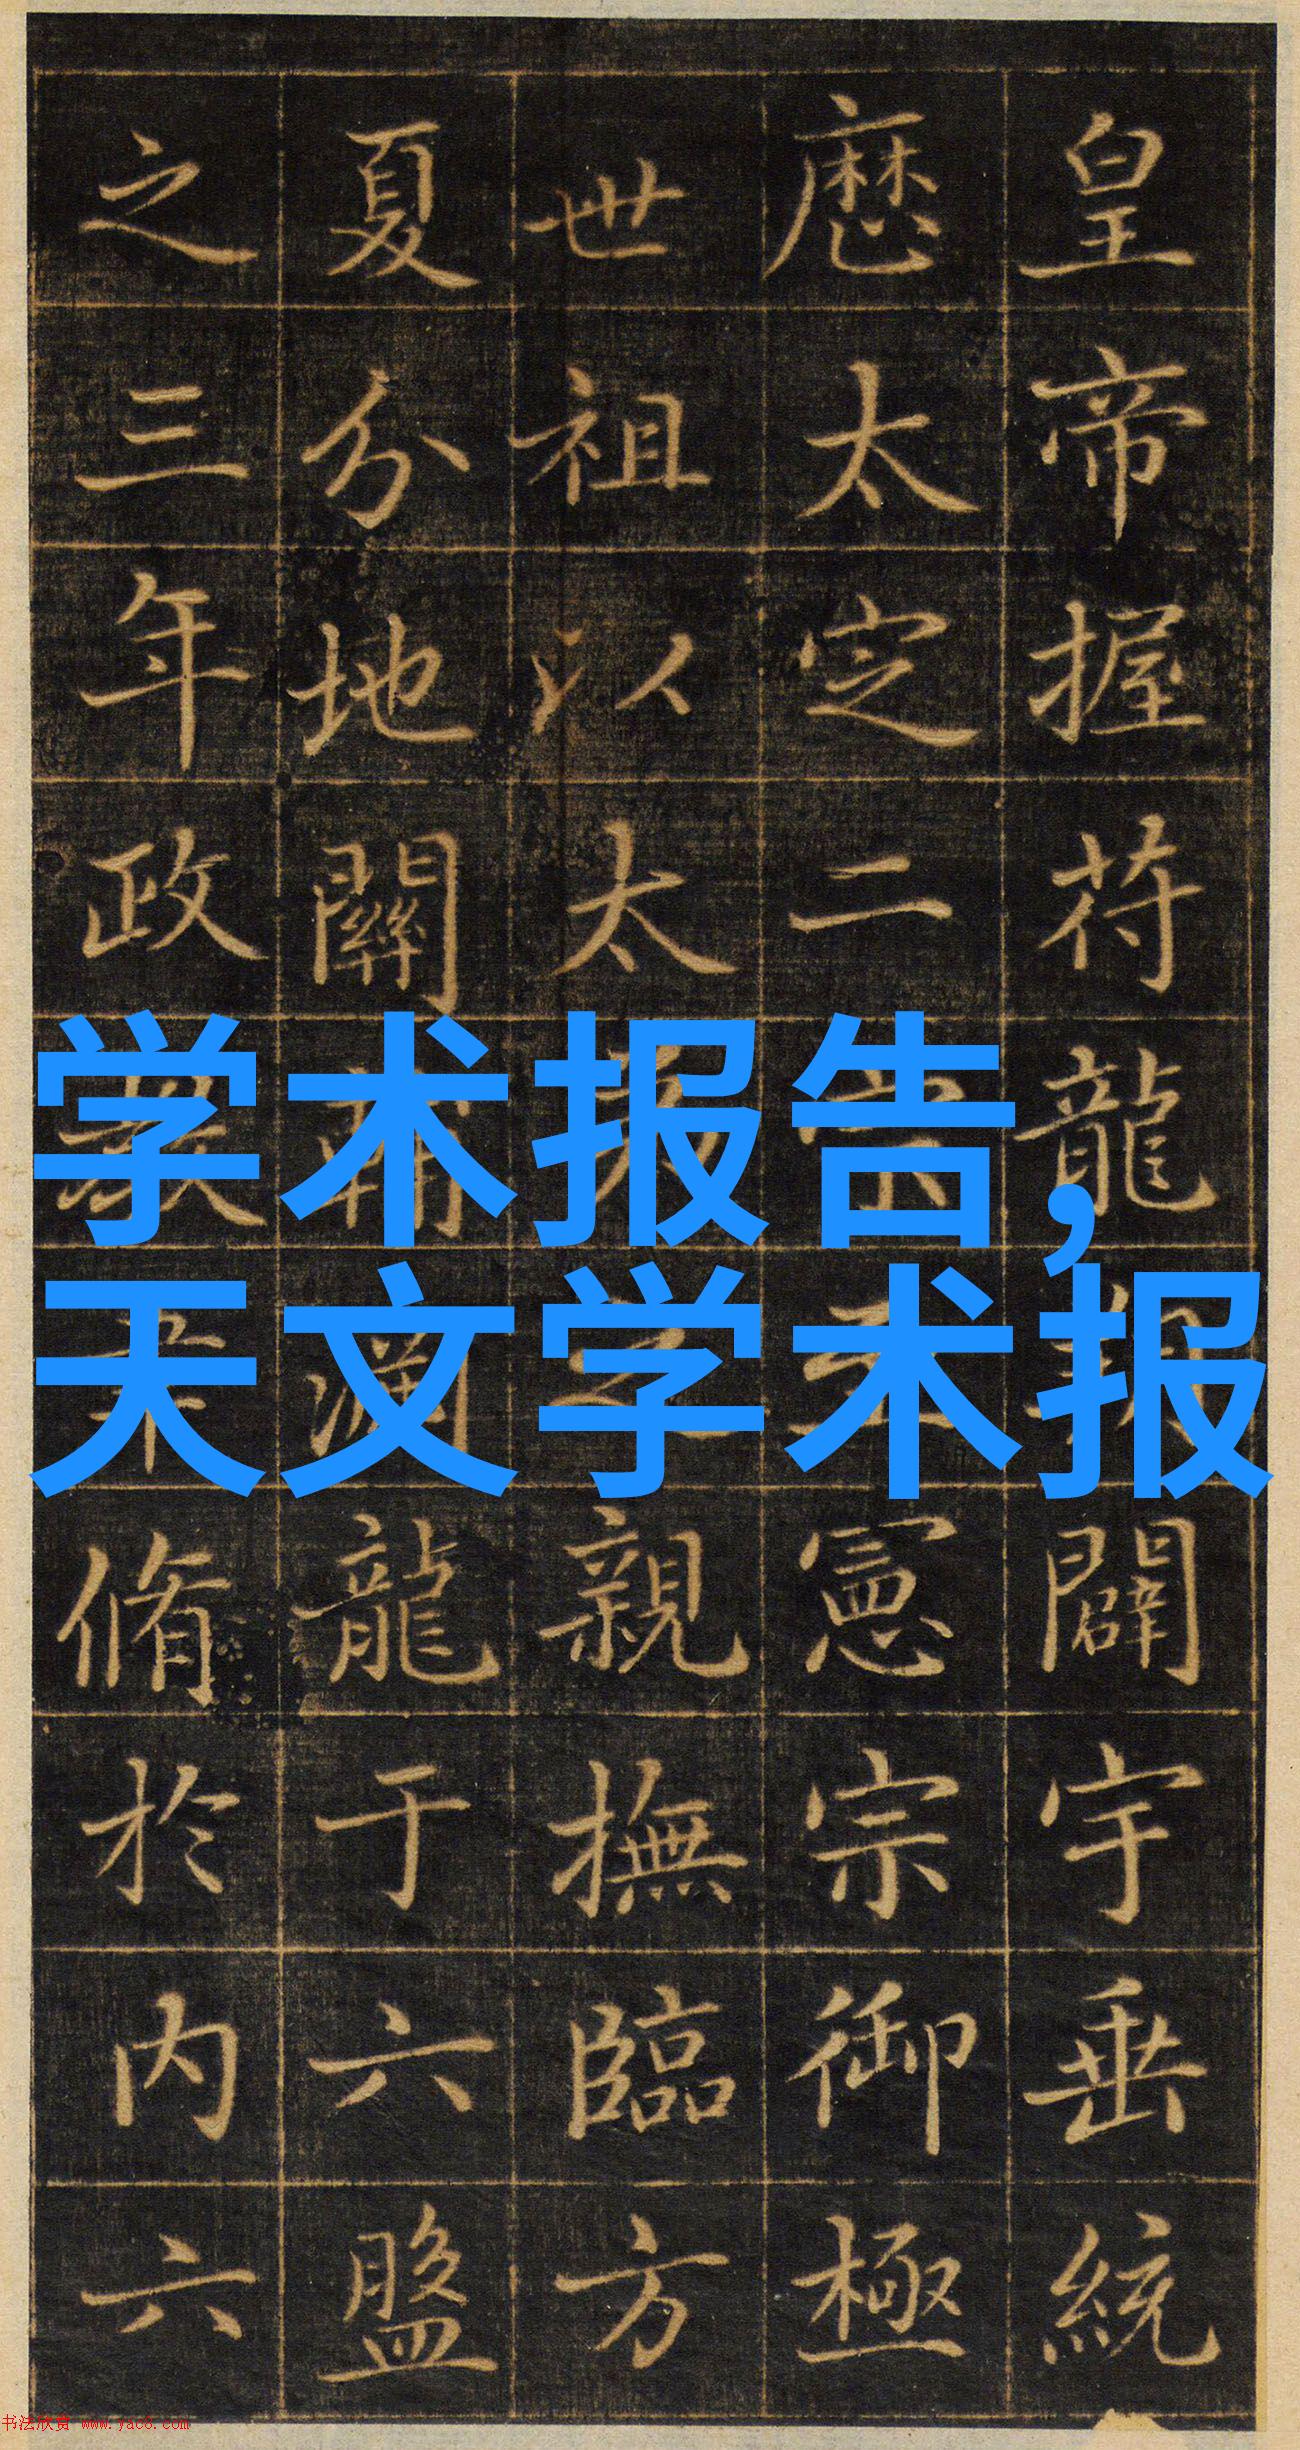 皇帝握苻龍闢宇垂統
歷太定二憲宗御極
世祖以太之親撫臨方
夏分地關輔淵龍于六盤
之三年政教脩於内六
学术报告,
天文学术报
书法欣赏 www.yac8.com